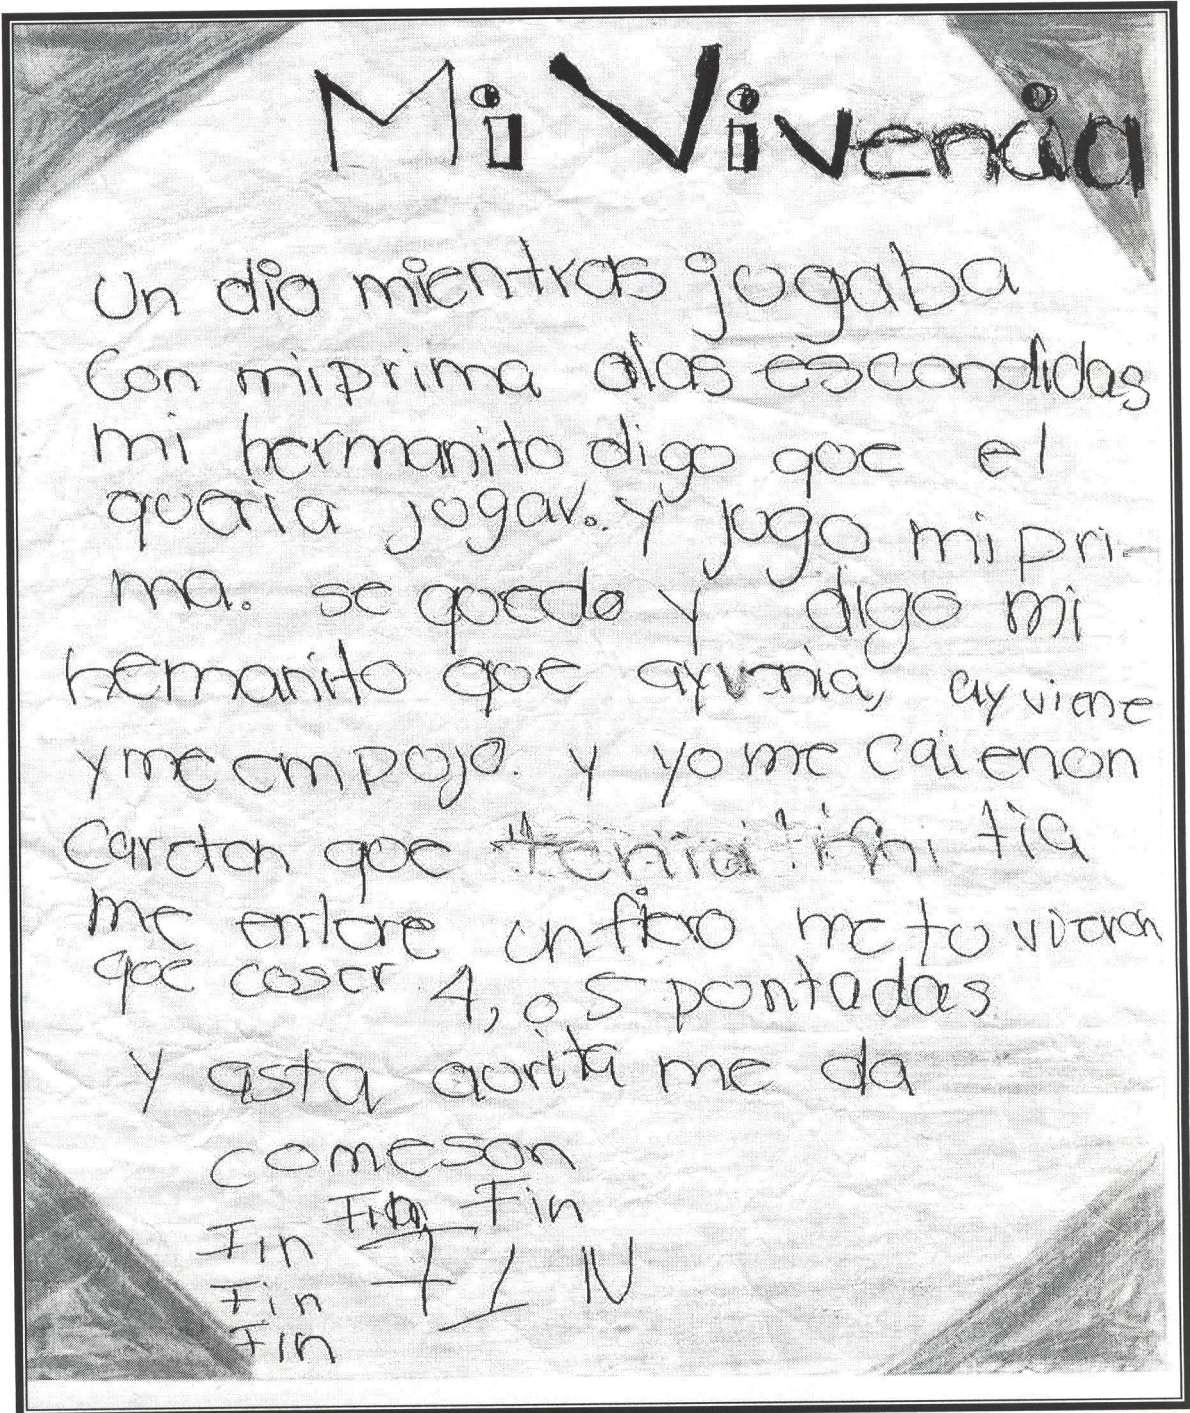 Mi Vivencia
Un dia mientras jugaba
Con miprima alas escondidas
mi hermanito digo que el
queria jugar. y jugo mi pri-
ma. se quedo y digo mi
hemanito que ayvenia, ay viene
y me empujo. y yo me cai enun
Carcton que tenia mi tia
me enterre un fiero me tu vieron
que coser 4, o 5 puntadas
y asta aorita me da
comeson
Fin Fin
Fin FIN
Fin
Fin